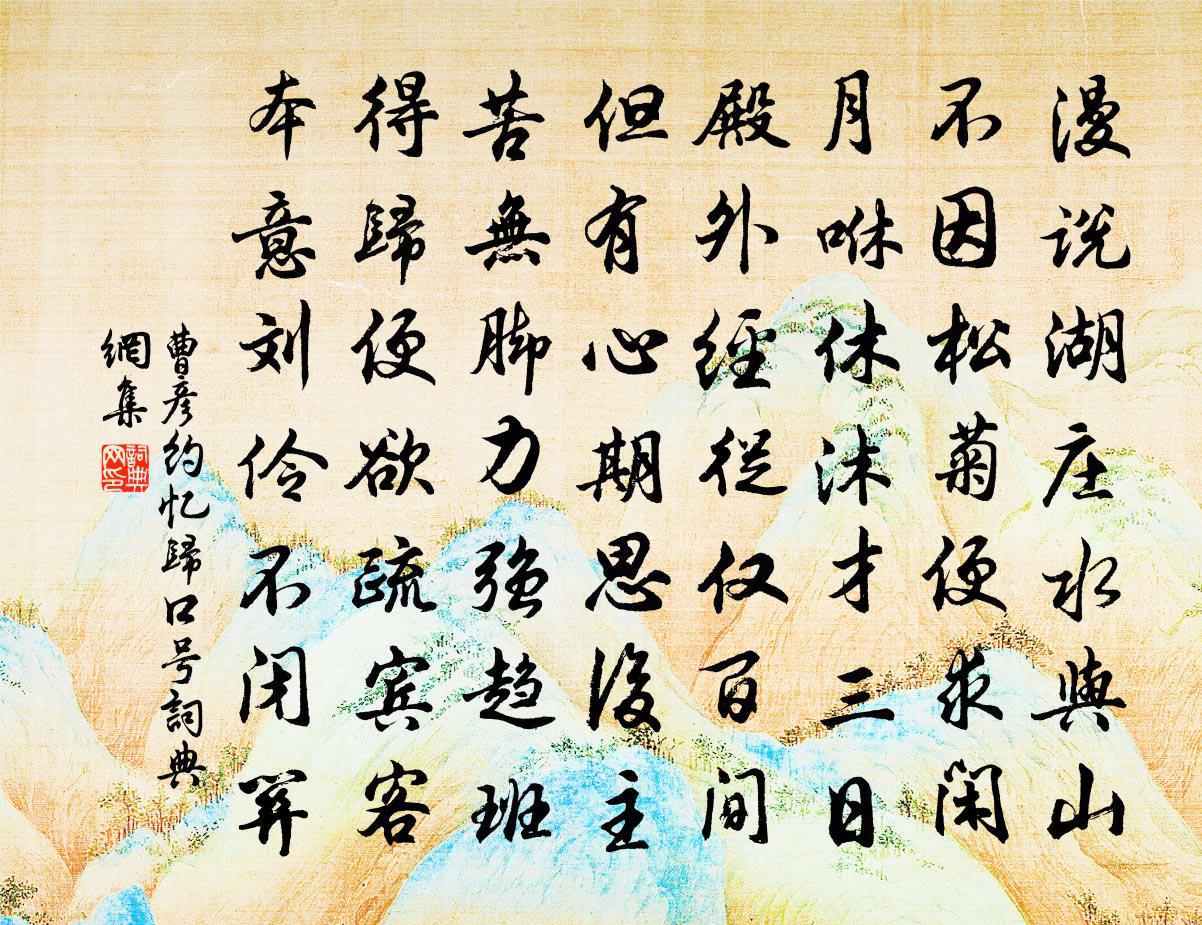 漫说湖庄水與山
不因松菊便求闲
月咻休沐才三日
殿外經從仅百间
但有心期思後主
苦無脚力强趋班
得歸便欲疏宾客
本意刘伶不闭關
曹彦约忆歸口号詞典
網集
詞典
网印